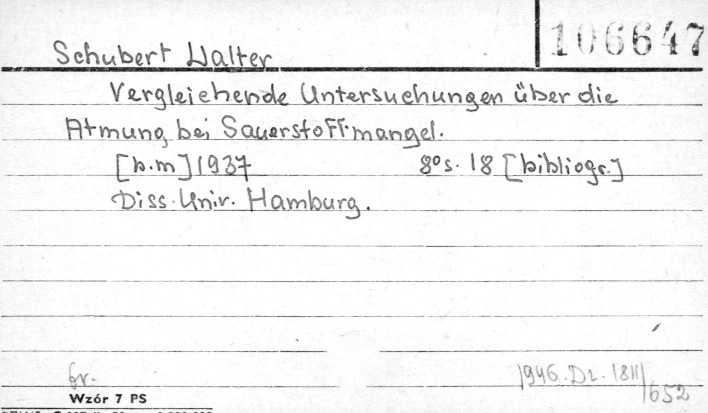 106647
Schubert Walter
Vergleichende Untersuchungen über die
Atmung bei Sauerstoffmangel.
[b.m] 1937 8° s. 18 [bibliogr.]
Diss. Univ. Hamburg.
fr.
1946. Dz. 1811/652
Wzór 7 PS